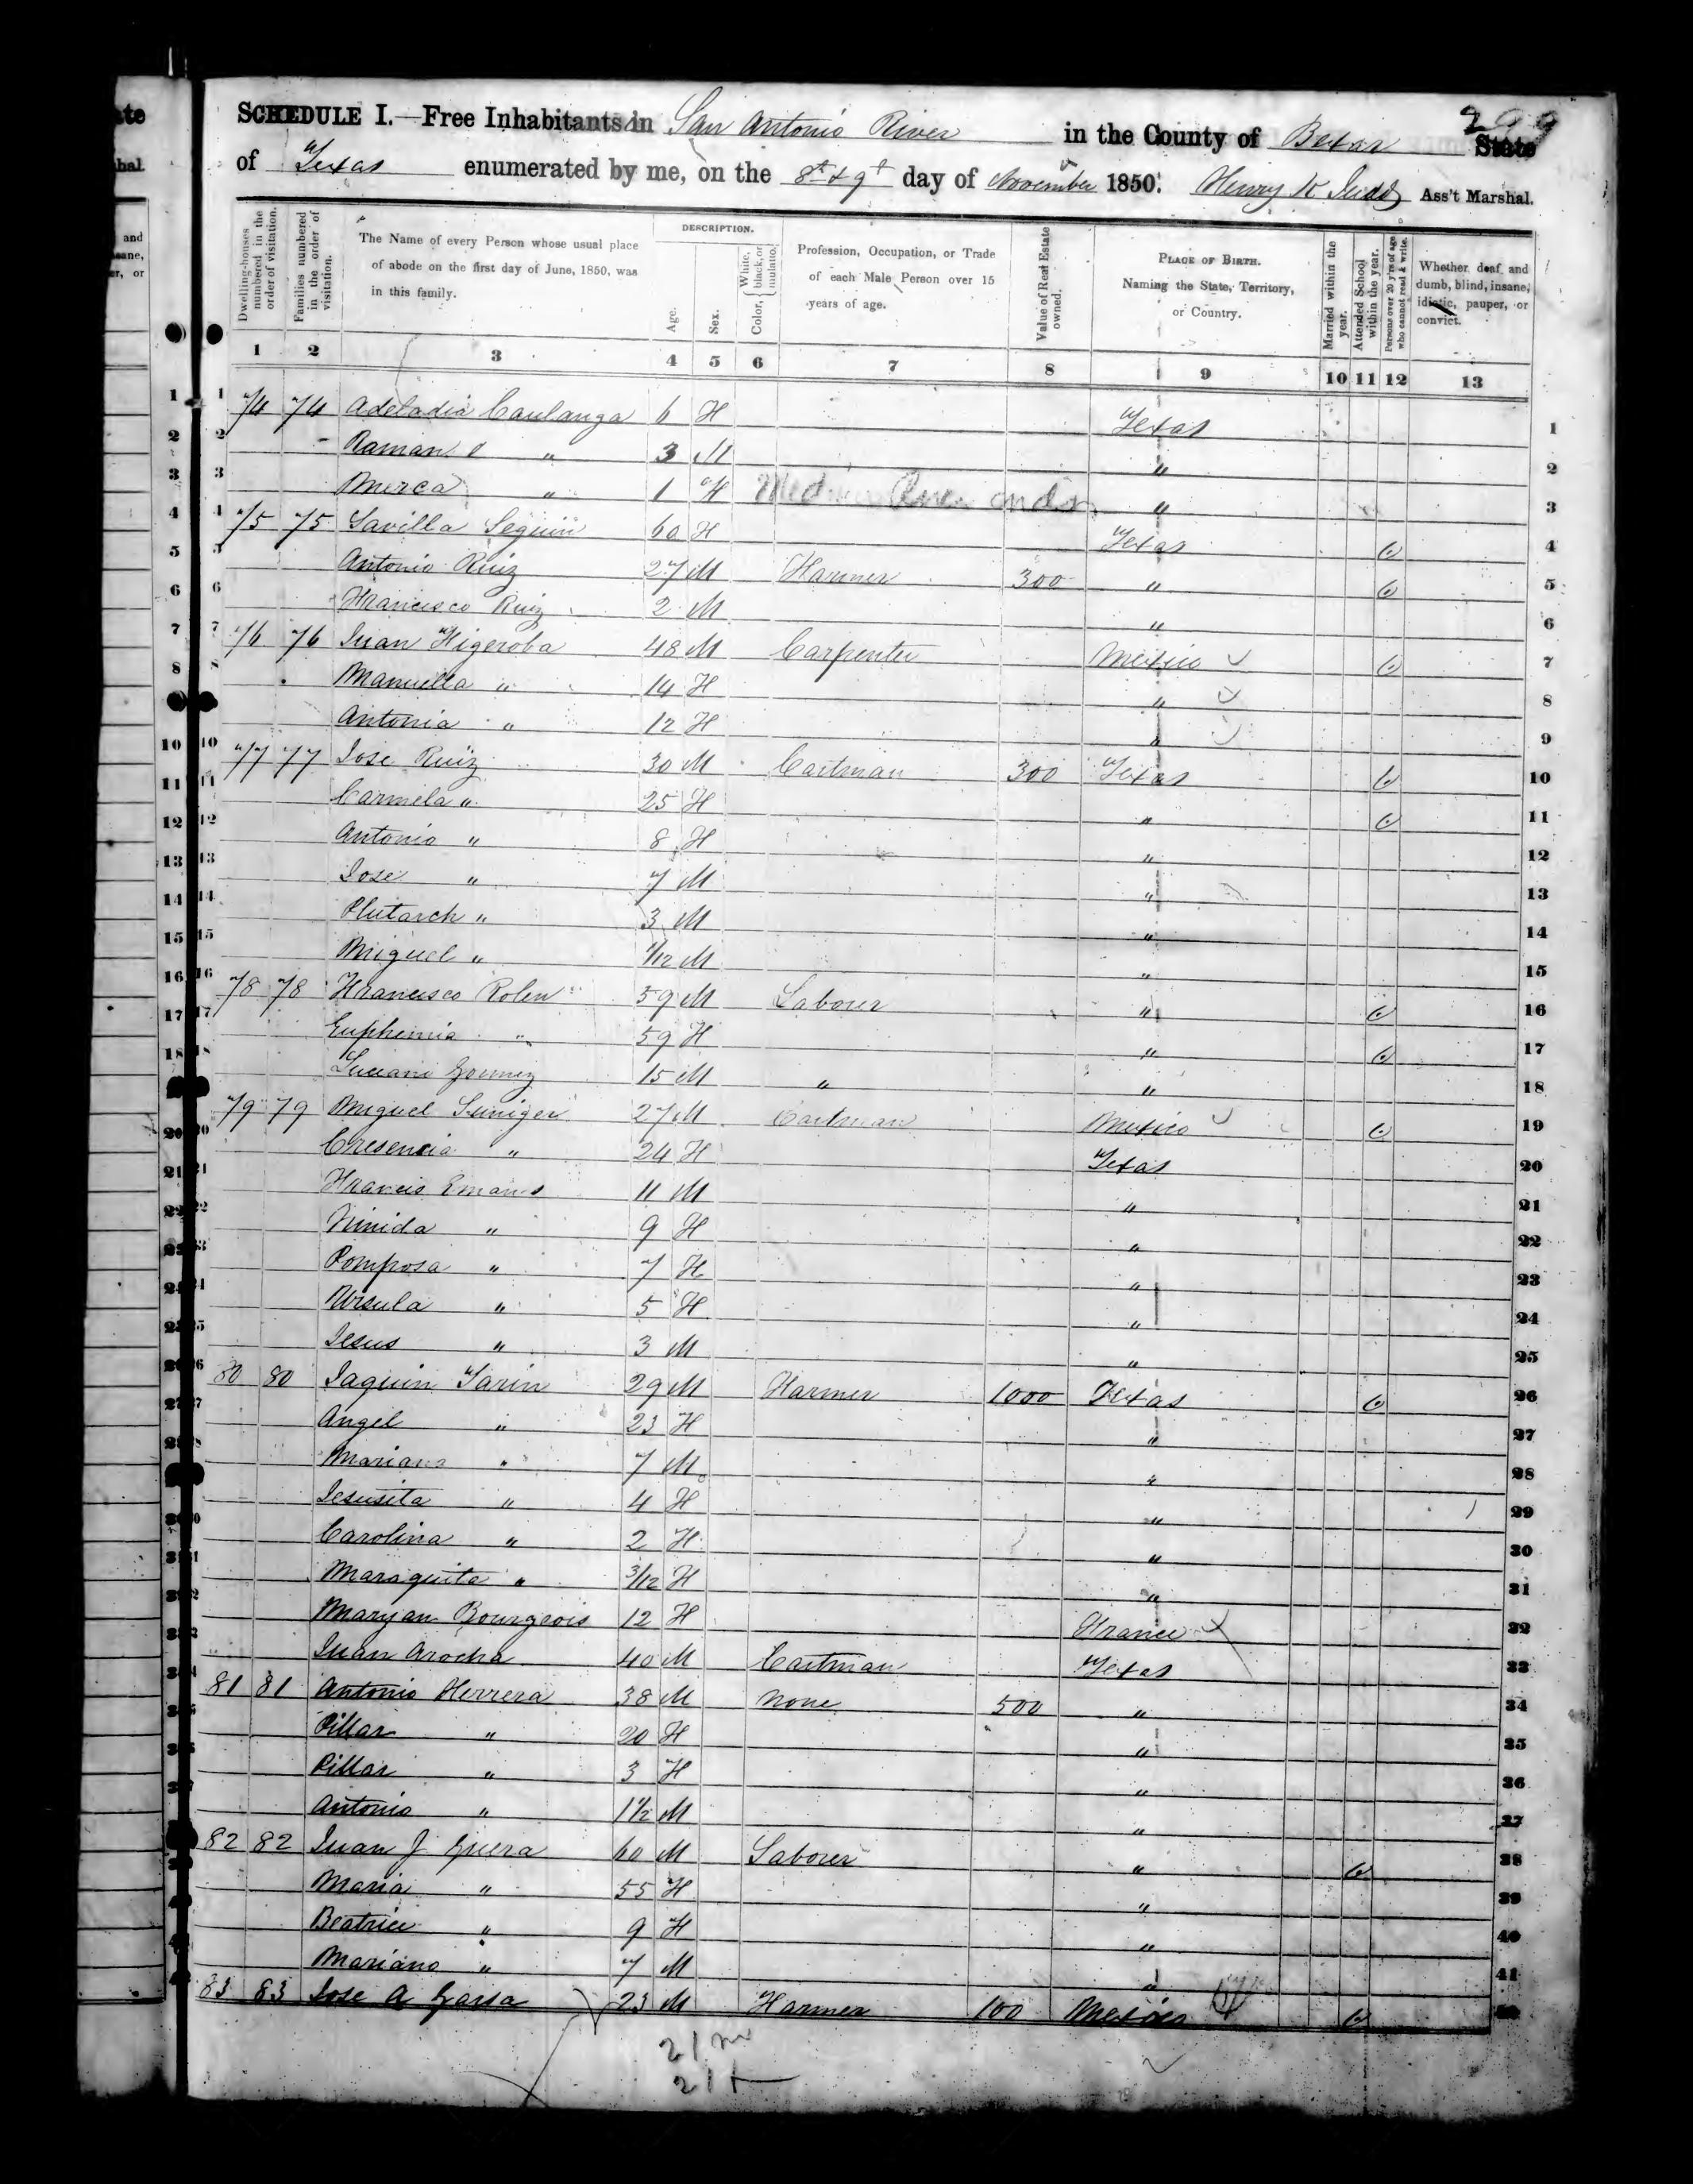 299
SCHEDULE I.—Free Inhabitants in San Antonio River in the County of Bexar State
of Texas enumerated by me, on the 8th & 9th day of November 1850. Henry K Judd Ass't Marshal.
Dwelling-houses numbered in the order of visitation.
Families numbered in the order of visitation.
The Name of every Person whose usual place of abode on the first day of June, 1850, was in this family.
DESCRIPTION.
Age.
Sex.
Color, White, black, or mulatto.
Profession, Occupation, or Trade of each Male Person over 15 years of age.
Value of Real Estate owned.
PLACE OF BIRTH. Naming the State, Territory, or Country.
Married within the year.
Attended School within the year.
Persons over 20 y'rs of age who cannot read & write.
Whether deaf and dumb, blind, insane, idiotic, pauper, or convict.
1 2 3 4 5 6 7 8 9 10 11 12 13
1 74 74 Adeladia Caulanga 6 F Texas 1
2 Raman " 3 M " 2
3 " 1 F River " 3
4 75 75 Savilla Seguin 60 F Texas 4
5 Antonio Ruiz 27 M Farmer 300 " 5
6 Francisco Ruiz 2 M " 6
7 76 76 Juan Figeroba 48 M Carpenter Mexico 7
8 Manuella " 14 F " 8
Antonia " 12 F " 9
10 77 77 Jose Ruiz 30 M Cartman 300 Texas 10
11 Carmela " 25 F " 11
12 Antonio " 8 F " 12
13 Jose " 7 M " 13
14 Plutarch " 3 M " 14
15 Miguel " 1/12 M " 15
16 78 78 Francisco Rolen 59 M Laborer " 16
17 Euphemia " 59 F " 17
18 Luciano Gomez 15 M " " 18
79 79 Miguel Suniger 27 M Cartman Mexico 19
20 Cresencia " 24 F Texas 20
21 Francis 11 M " 21
22 " 9 F " 22
23 Pomposa " 7 F " 23
24 Ursula " 5 F " 24
25 Jesus " 3 M " 25
26 80 80 Jaquin Tarin 29 M Farmer 1000 Texas 26
27 Angel " 23 F " 27
28 Mariano " 7 M " 28
Jesusita " 4 F " 29
30 Carolina " 2 F " 30
31 Maraquita " 3/12 F " 31
32 Maryan Bourgeois 12 F France 32
33 Juan Arocha 40 M Cartman Texas 33
34 81 81 Antonio Herrera 38 M None 500 " 34
35 Pillar " 20 F " 35
36 Pillar " 3 F " 36
37 Antonio " 1 1/2 M " 37
82 82 Juan J Guera 60 M Laborer " 38
39 Maria " 55 F " 39
40 Beatrice " 9 F " 40
41 Mariano " 7 M " 41
83 83 Jose A Garsa 23 M Farmer 100 Mexico
21 m
21 f